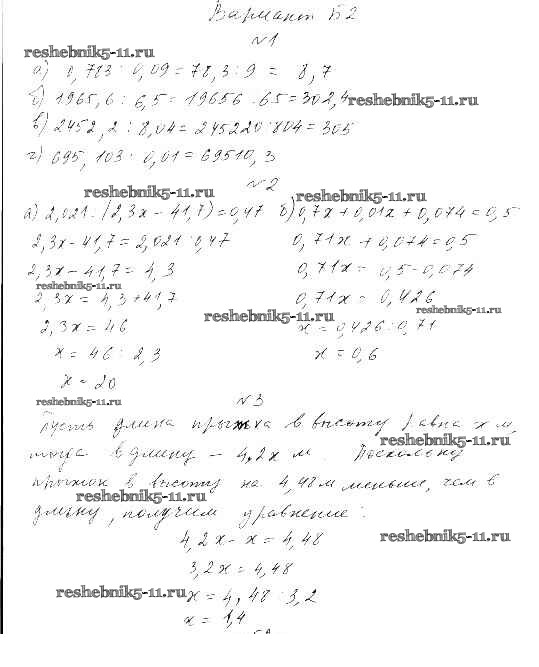 Вариант Б2
№1
reshebnik5-11.ru
а) 0,783 : 0,09 = 78,3 : 9 = 8,7
б) 1965,6 : 6,5 = 19656 : 65 = 302,4
reshebnik5-11.ru
в) 2452,2 : 8,04 = 245220 : 804 = 305
г) 695,103 : 0,01 = 69510,3
№2
reshebnik5-11.ru reshebnik5-11.ru
а) 2,021 : (2,3x - 41,7) = 0,47 б) 0,7x + 0,01x + 0,074 = 0,5
2,3x - 41,7 = 2,021 : 0,47 0,71x + 0,074 = 0,5
2,3x - 41,7 = 4,3 0,71x = 0,5 - 0,074
reshebnik5-11.ru
2,3x = 4,3 + 41,7 0,71x = 0,426
reshebnik5-11.ru reshebnik5-11.ru
2,3x = 46 x = 0,426 : 0,71
x = 46 : 2,3 x = 0,6
x = 20
reshebnik5-11.ru
№3
Пусть длина прыжка в высоту равна x м,
reshebnik5-11.ru
тогда в длину - 4,2x м. Поскольку
прыжок в высоту на 4,48 м меньше, чем в
reshebnik5-11.ru
длину, получим уравнение:
4,2x - x = 4,48
reshebnik5-11.ru
3,2x = 4,48
reshebnik5-11.ru
x = 4,48 : 3,2
x = 1,4